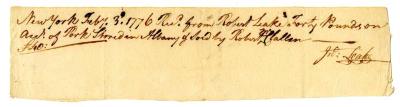 New York Feby. 3d. 1776 Recd. from Robert Leake Forty Pounds on
Acct. of Pork Stored in Albany & Sold by Robert
Jno. Leake